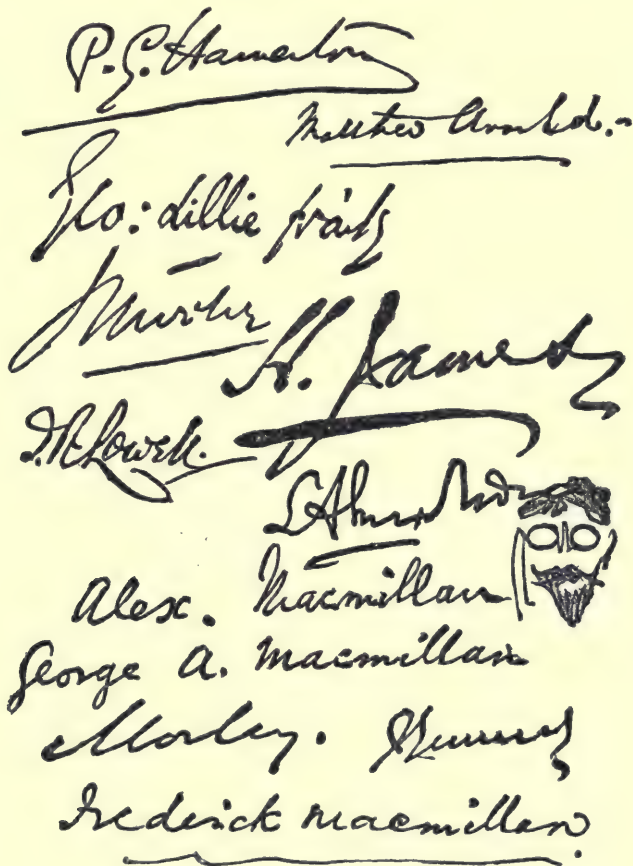 P. G. Hamerton
Matthew Arnold.
Geo: Lillie Craik
H. James
J. R. Lowell.
L Alma
Alex. Macmillan
George A. Macmillan
Morley.
Frederick Macmillan